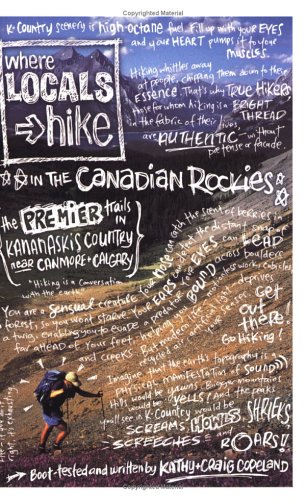 K-Country scenery is high-octane fuel. Fill up with your EYES
and your HEART pumps it to your
MUSCLES.
where
LOCALS
hike
Hiking whittles away
at people, chipping them down to their
ESSENCE. That's why TRUE HIKERS
those for whom hiking is a BRIGHT
THREAD
in the fabric of their lives
are AUTHENTIC, without
pretense or facade.
IN THE CANADIAN ROCKIES
the PREMIER trails
IN
KANANASKIS COUNTRY
near CANMORE + CALGARY
"Hiking is a conversation
with the earth."
You are a sensual creature. Your NOSE can catch the scent of berries in
a forest, so you won't starve. Your EARS can detect the distant snap of
a twig, enabling you to evade a predator. Your EYES can LEAP
far ahead of your feet.
BOUND across boulders
and creeks.
GET
out
there.
Go hiking!
Imagine that the earth's topography is a
PHYSICAL manifestation of SOUND
Hills would be
would be YELLS! And the peaks
you'll see in K-Country would be SHRIEKS,
SCREAMS, HOWLS,
SCREECHES and ROARS!!
Boot-tested and written by KATHY + CRAIG COPELAND